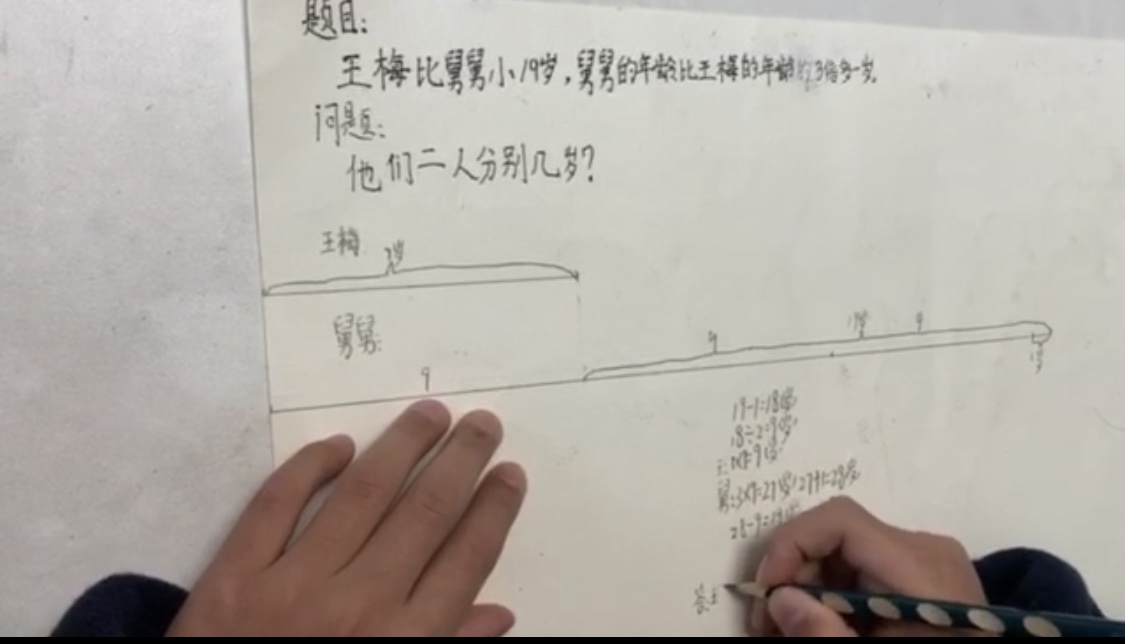 题目:
王梅比舅舅小19岁,舅舅的年龄比王梅的年龄的3倍多一岁.
问题:
他们二人分别几岁?
王梅
舅舅:
9
9
19岁
9
19-1=18(岁)
18÷2=9(岁)
王:1×9=9(岁)
舅:3×9=27(岁)27+1=28岁
28-9=19(岁)
答:王